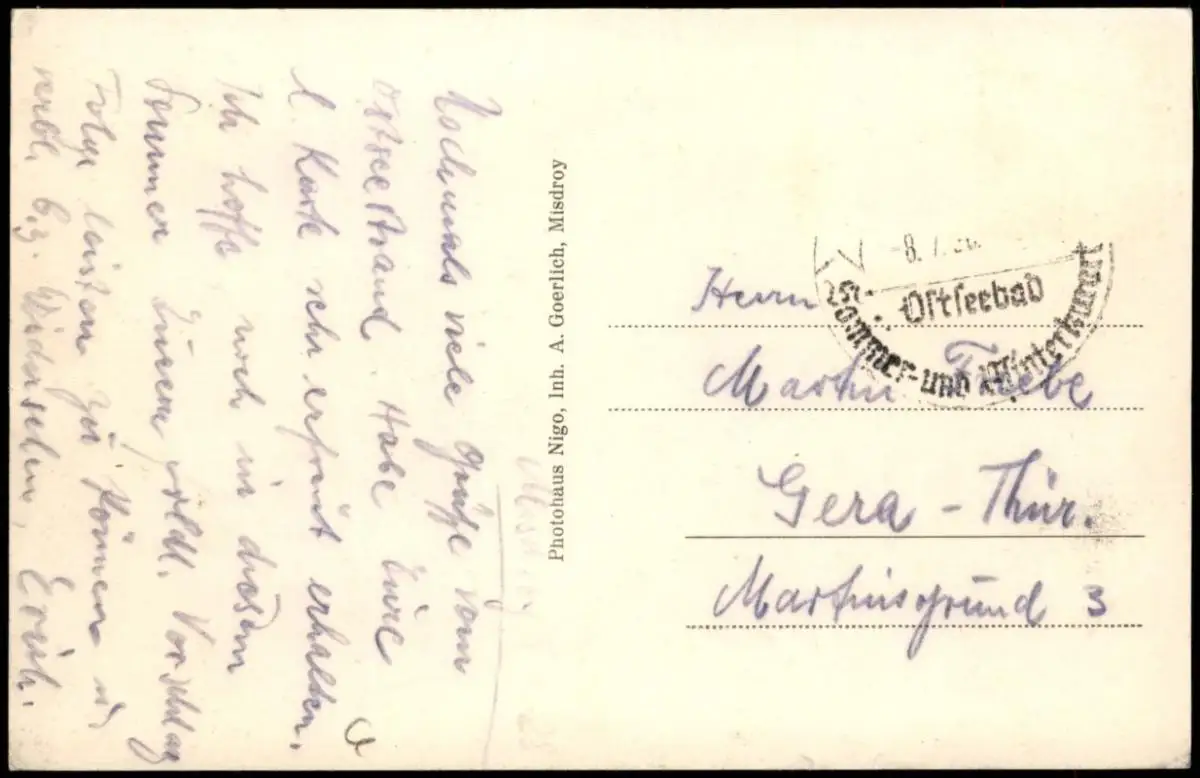 Nochmals viele Grüße vom
Ostseestrand. Habe Eure
l. Karte sehr erfreut erhalten.
Ich hoffe noch in diesem
Sommer Eurem frdl. Vorschlag
Folge leisten zu können u.
verbl. b. z. Wiedersehn, Erich.
Photohaus Nigo, Inh. A. Goerlich, Misdroy
-8.7.
Ostseebad
Sommer- und Winterkurort
Herrn
Martin
Gera - Thür.
Martinsgrund 3